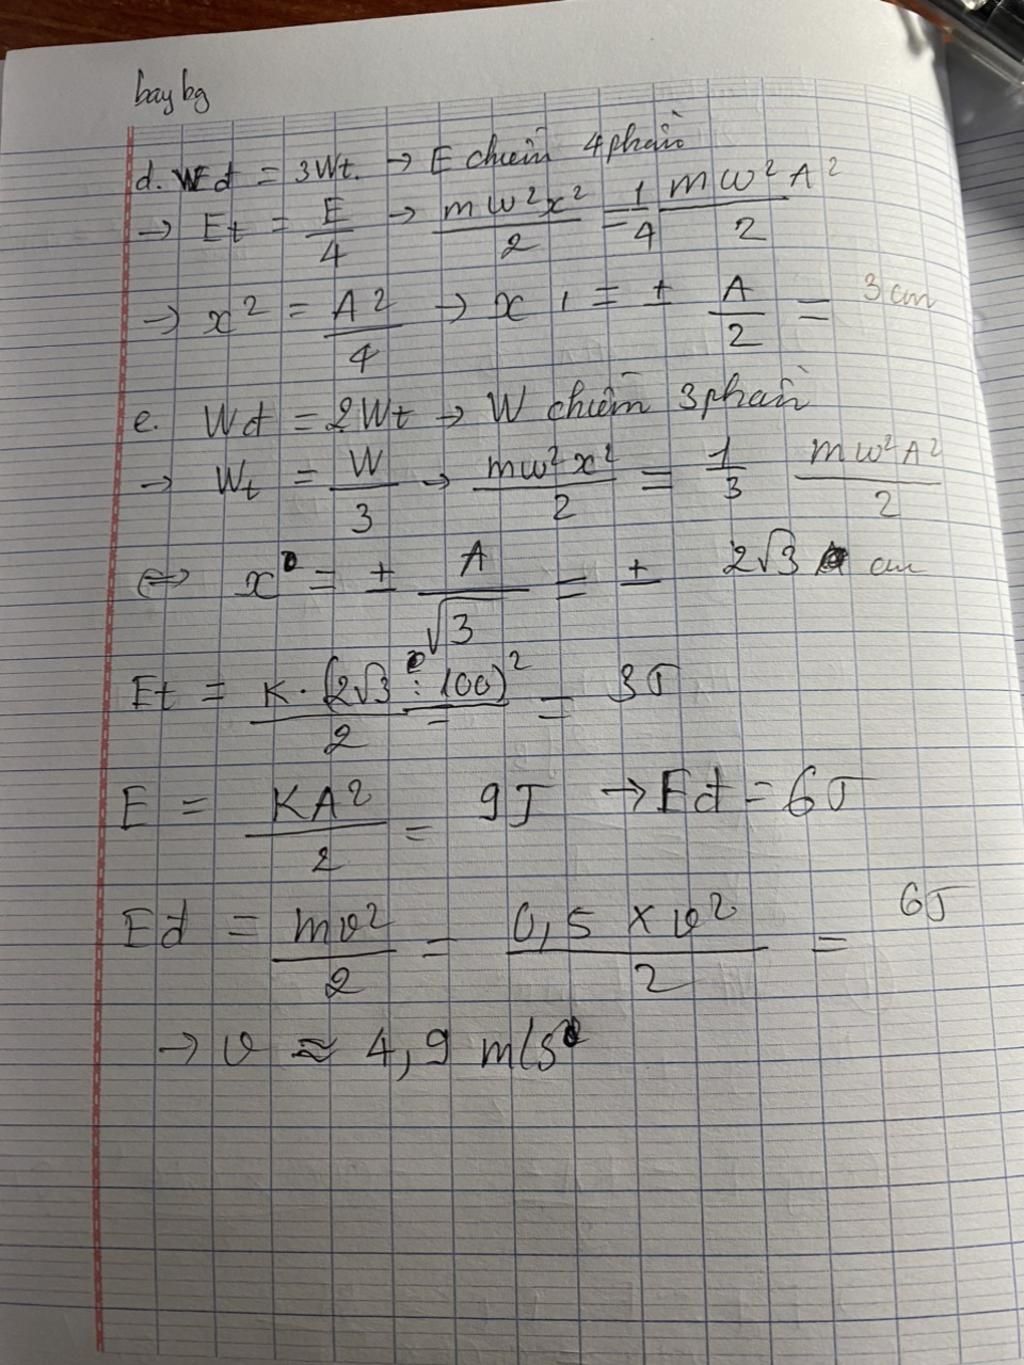 bay bg
d. Wđ = 3Wt. → E chiếm 4 phần
→ Et = E/4 → mω²x²/2 = 1/4 mω²A²/2
→ x² = A²/4 → x₁ = ± A/2 = 3 cm
e. Wđ = 2Wt → W chiếm 3 phần
→ Wt = W/3 → mω²x²/2 = 1/3 mω²A²/2
⇔ x = ± A/√3 = ± 2√3 cm
Et = K.(2√3 : 100)²/2 = 3J
E = KA²/2 = 9J → Eđ = 6J
Eđ = mv²/2 = 0,5 × v²/2 = 6J
→ v ≈ 4,9 m/s